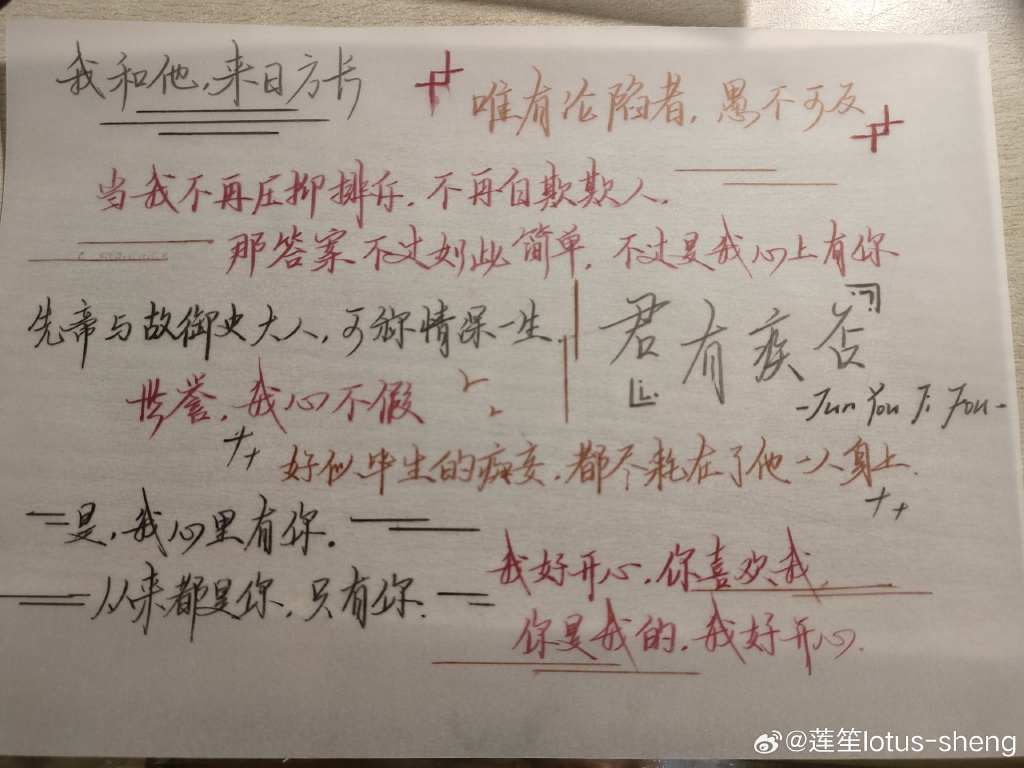 我和他,来日方长
唯有沦陷者,愚不可及
当我不再压抑排斥,不再自欺欺人,
那答案不过如此简单,不过是我心上有你
先帝与故御史大人,可称情深一生.
君有疾否
-Jun You Ji Fou-
世誉,我心不假
好似毕生的痴妄,都尽耗在了他一人身上.
是,我心里有你.
从来都是你,只有你.
我好开心,你喜欢我,
你是我的,我好开心.
@莲笙lotus-sheng